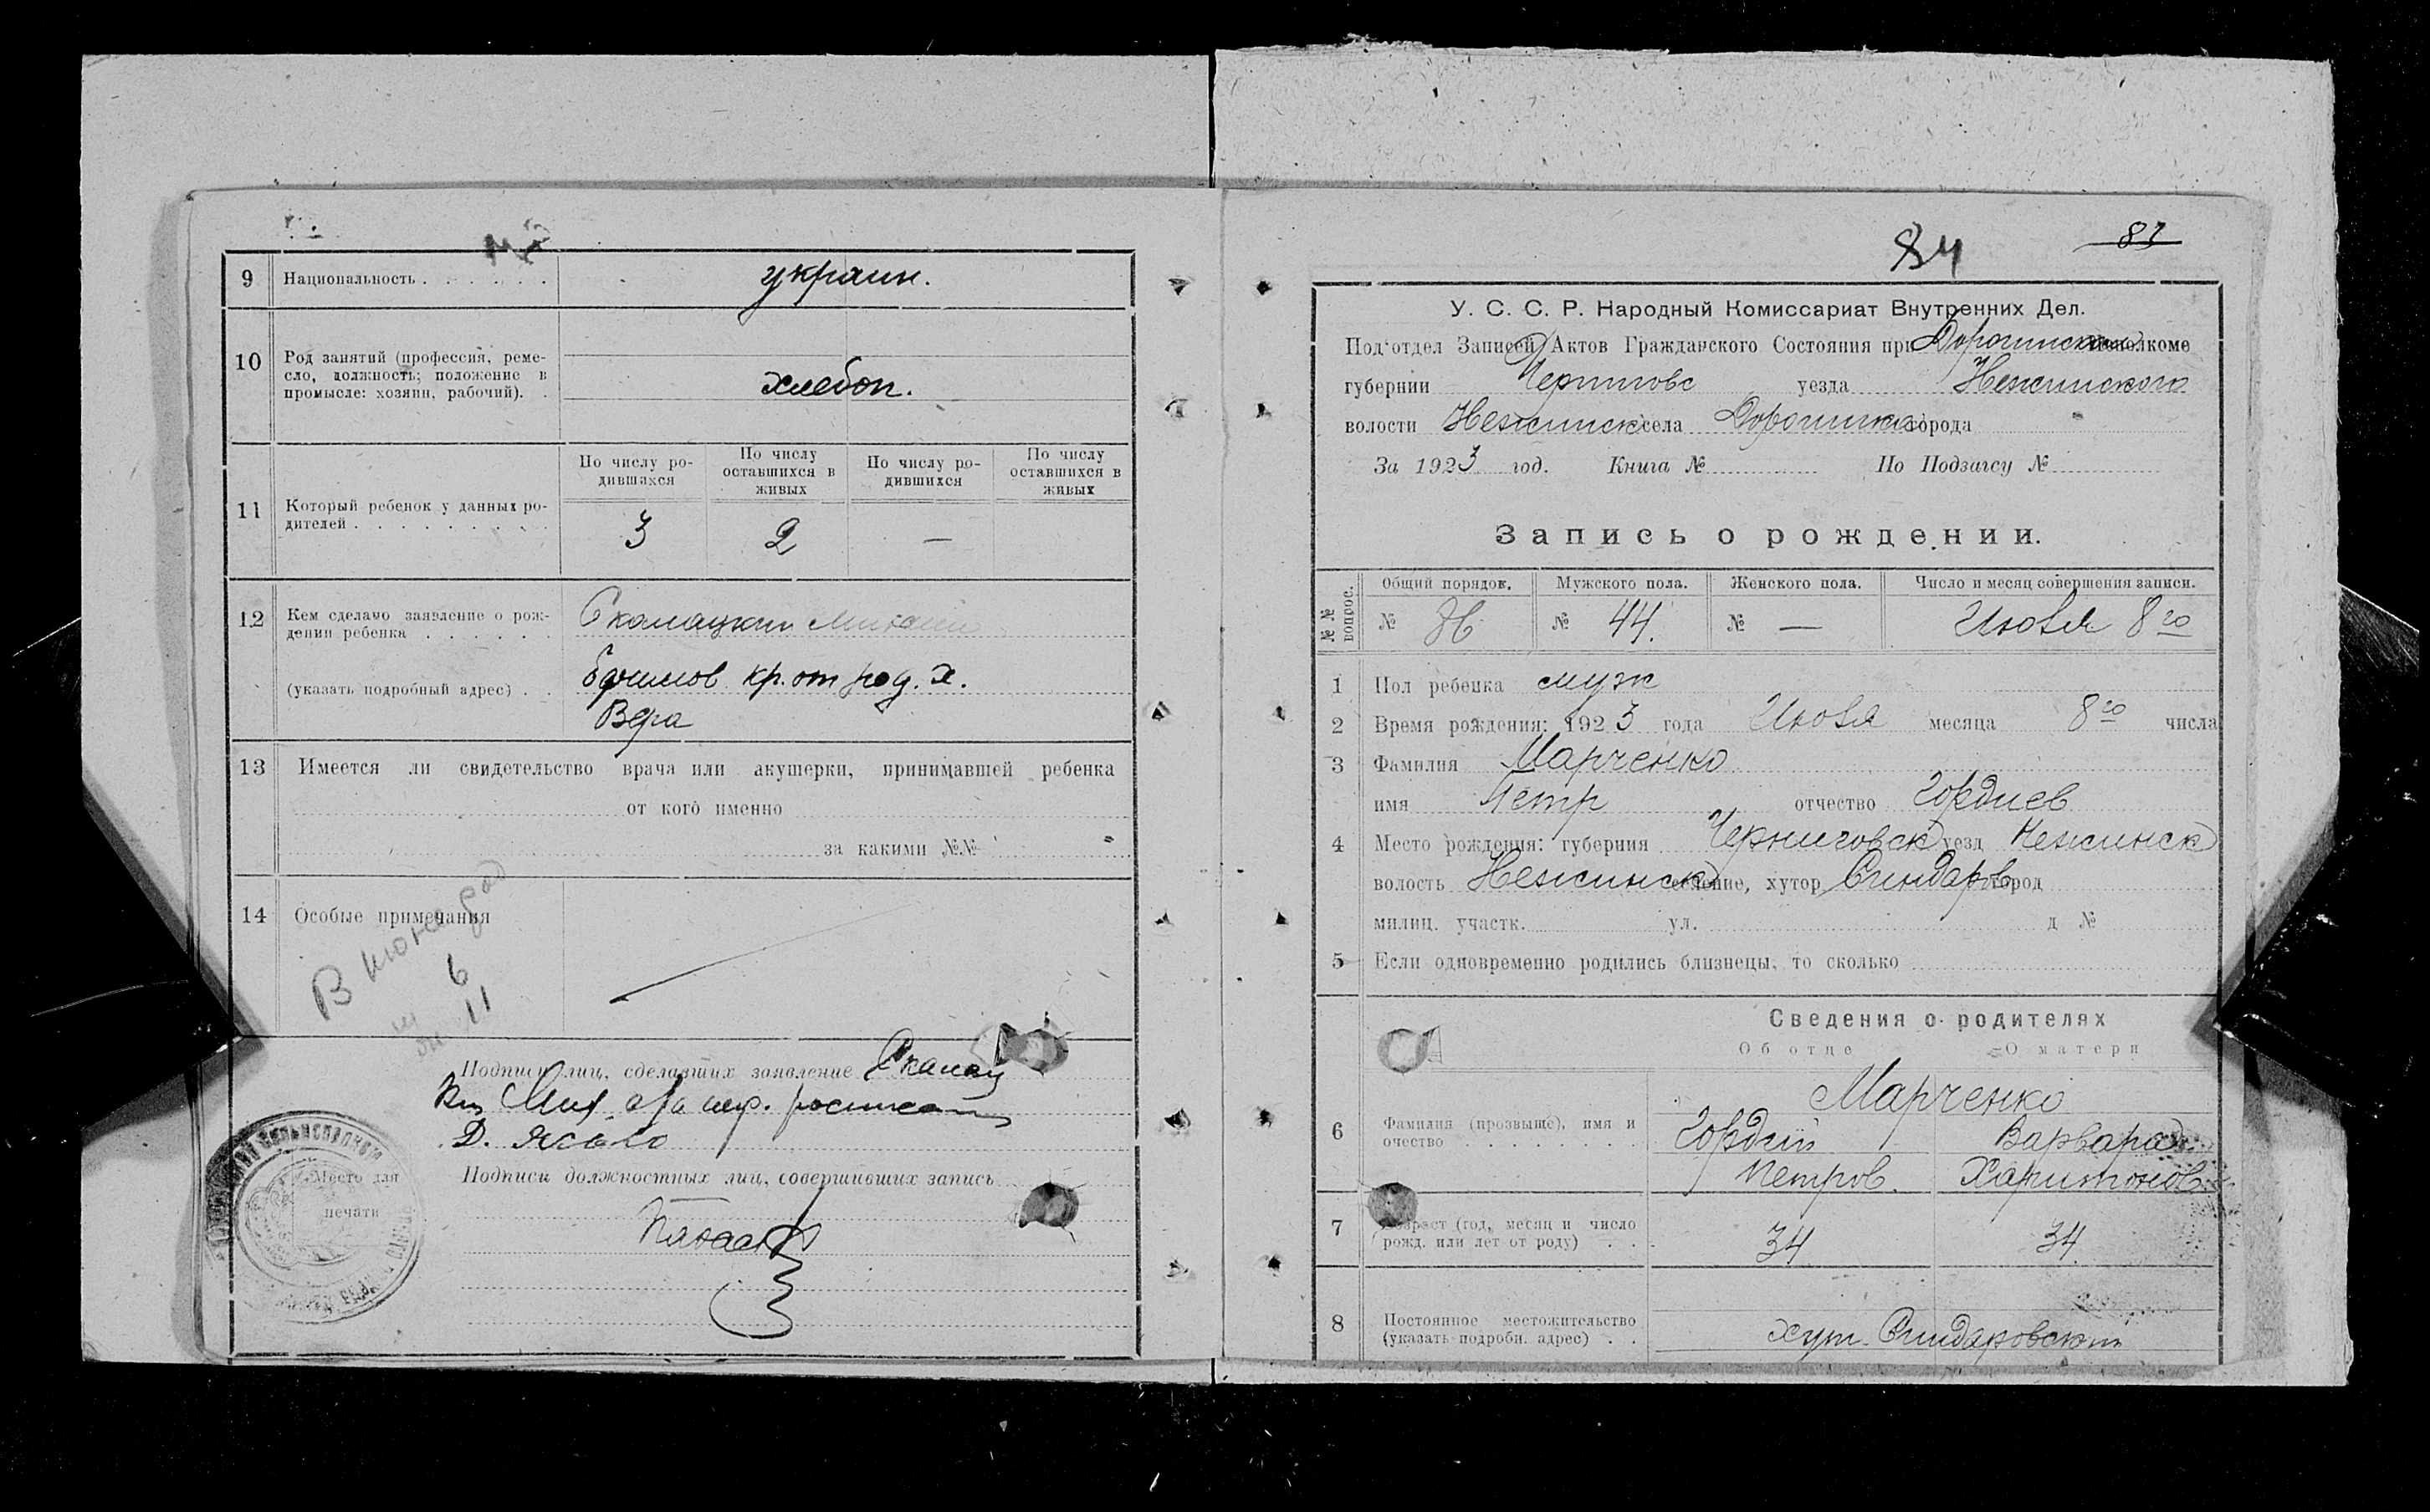 9 Национальность украин.
10 Род занятий (профессия, реме-
сло, должность; положение в
промысле: хозяин, рабочий).
хлебоп.
По числу ро-
дившихся
По числу
оставшихся в
живых
По числу ро-
дившихся
По числу
оставшихся в
живых
11 Который ребенок у данных ро-
дителей 3 2 —
12 Кем сделано заявление о рож-
дении ребенка
(указать подробный адрес)
кр. от род. х.
Вера
13 Имеется ли свидетельство врача или акушерки, принимавшей ребенка
от кого именно
за какими №№
14 Особые примечания
6
11
Подписи лиц, сделавших заявление
Подписи должностных лиц, совершивших запись
Место для
печати
84 83
У. С. С. Р. Народный Комиссариат Внутренних Дел.
Под'отдел Записей Актов Гражданского Состояния при Дорогинском Исполкоме
губернии Черниговс уезда Нежинского
волости Нежинск села Дорогинка города
За 1923 год. Книга № По Подзагсу №
Запись о рождении.
№№ вопрос.
Общий порядок. Мужского пола. Женского пола. Число и месяц совершения записи.
№ № 44. № — Июля 8го
1 Пол ребенка муж
2 Время рождения: 1923 года Июля месяца 8го числа
3 Фамилия Марченко
имя Петр отчество Гордиев
4 Место рождения: губерния Черниговск уезд Нежинск
волость Нежинск селение, хутор Синдаров город
милиц. участк. ул. д №
5 Если одновременно родились близнецы, то сколько
Сведения о родителях
Об отце О матери
Марченко
6 Фамилия (прозвище), имя и
очество
Гордий Варвара
Петров. Харитонов.
7 Возраст (год, месяц и число
рожд. или лет от роду) 34 34.
8 Постоянное местожительство
(указать подробн. адрес)
хут. Синдаровский